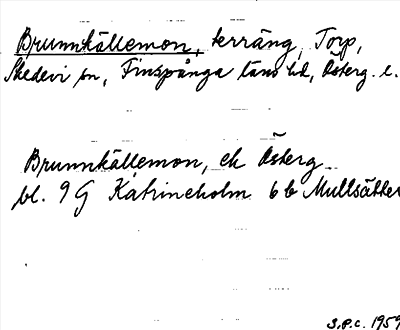 Brunnkällemon, terräng, Torp,
Skedevi sn, Finspånga läns hd, Österg. l.
Brunnkällemon, ek Österg
bl. 9 G Katrineholm 6 b Mullsätter
S.P.C. 1959